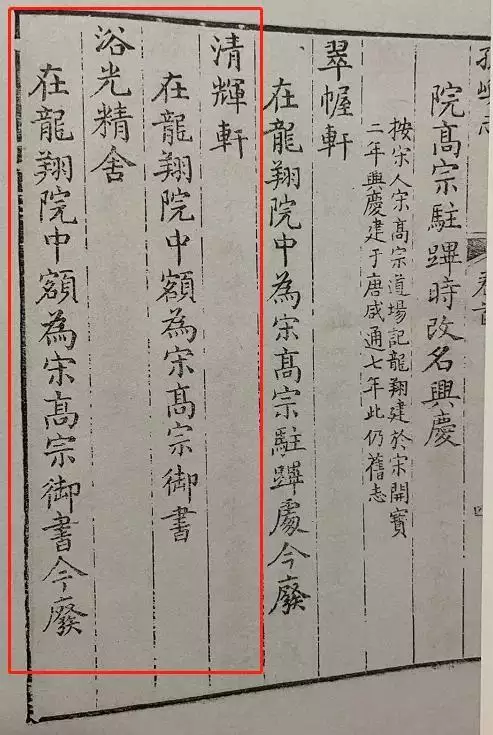 孤嶼志
卷首
四
院高宗駐蹕時改名興慶
按宋人宋高宗道場記龍翔建於宋開寶
二年興慶建于唐咸通七年此仍舊志
翠幄軒
在龍翔院中為宋高宗駐蹕處今廢
清輝軒
在龍翔院中額為宋高宗御書
浴光精舍
在龍翔院中額為宋高宗御書今廢